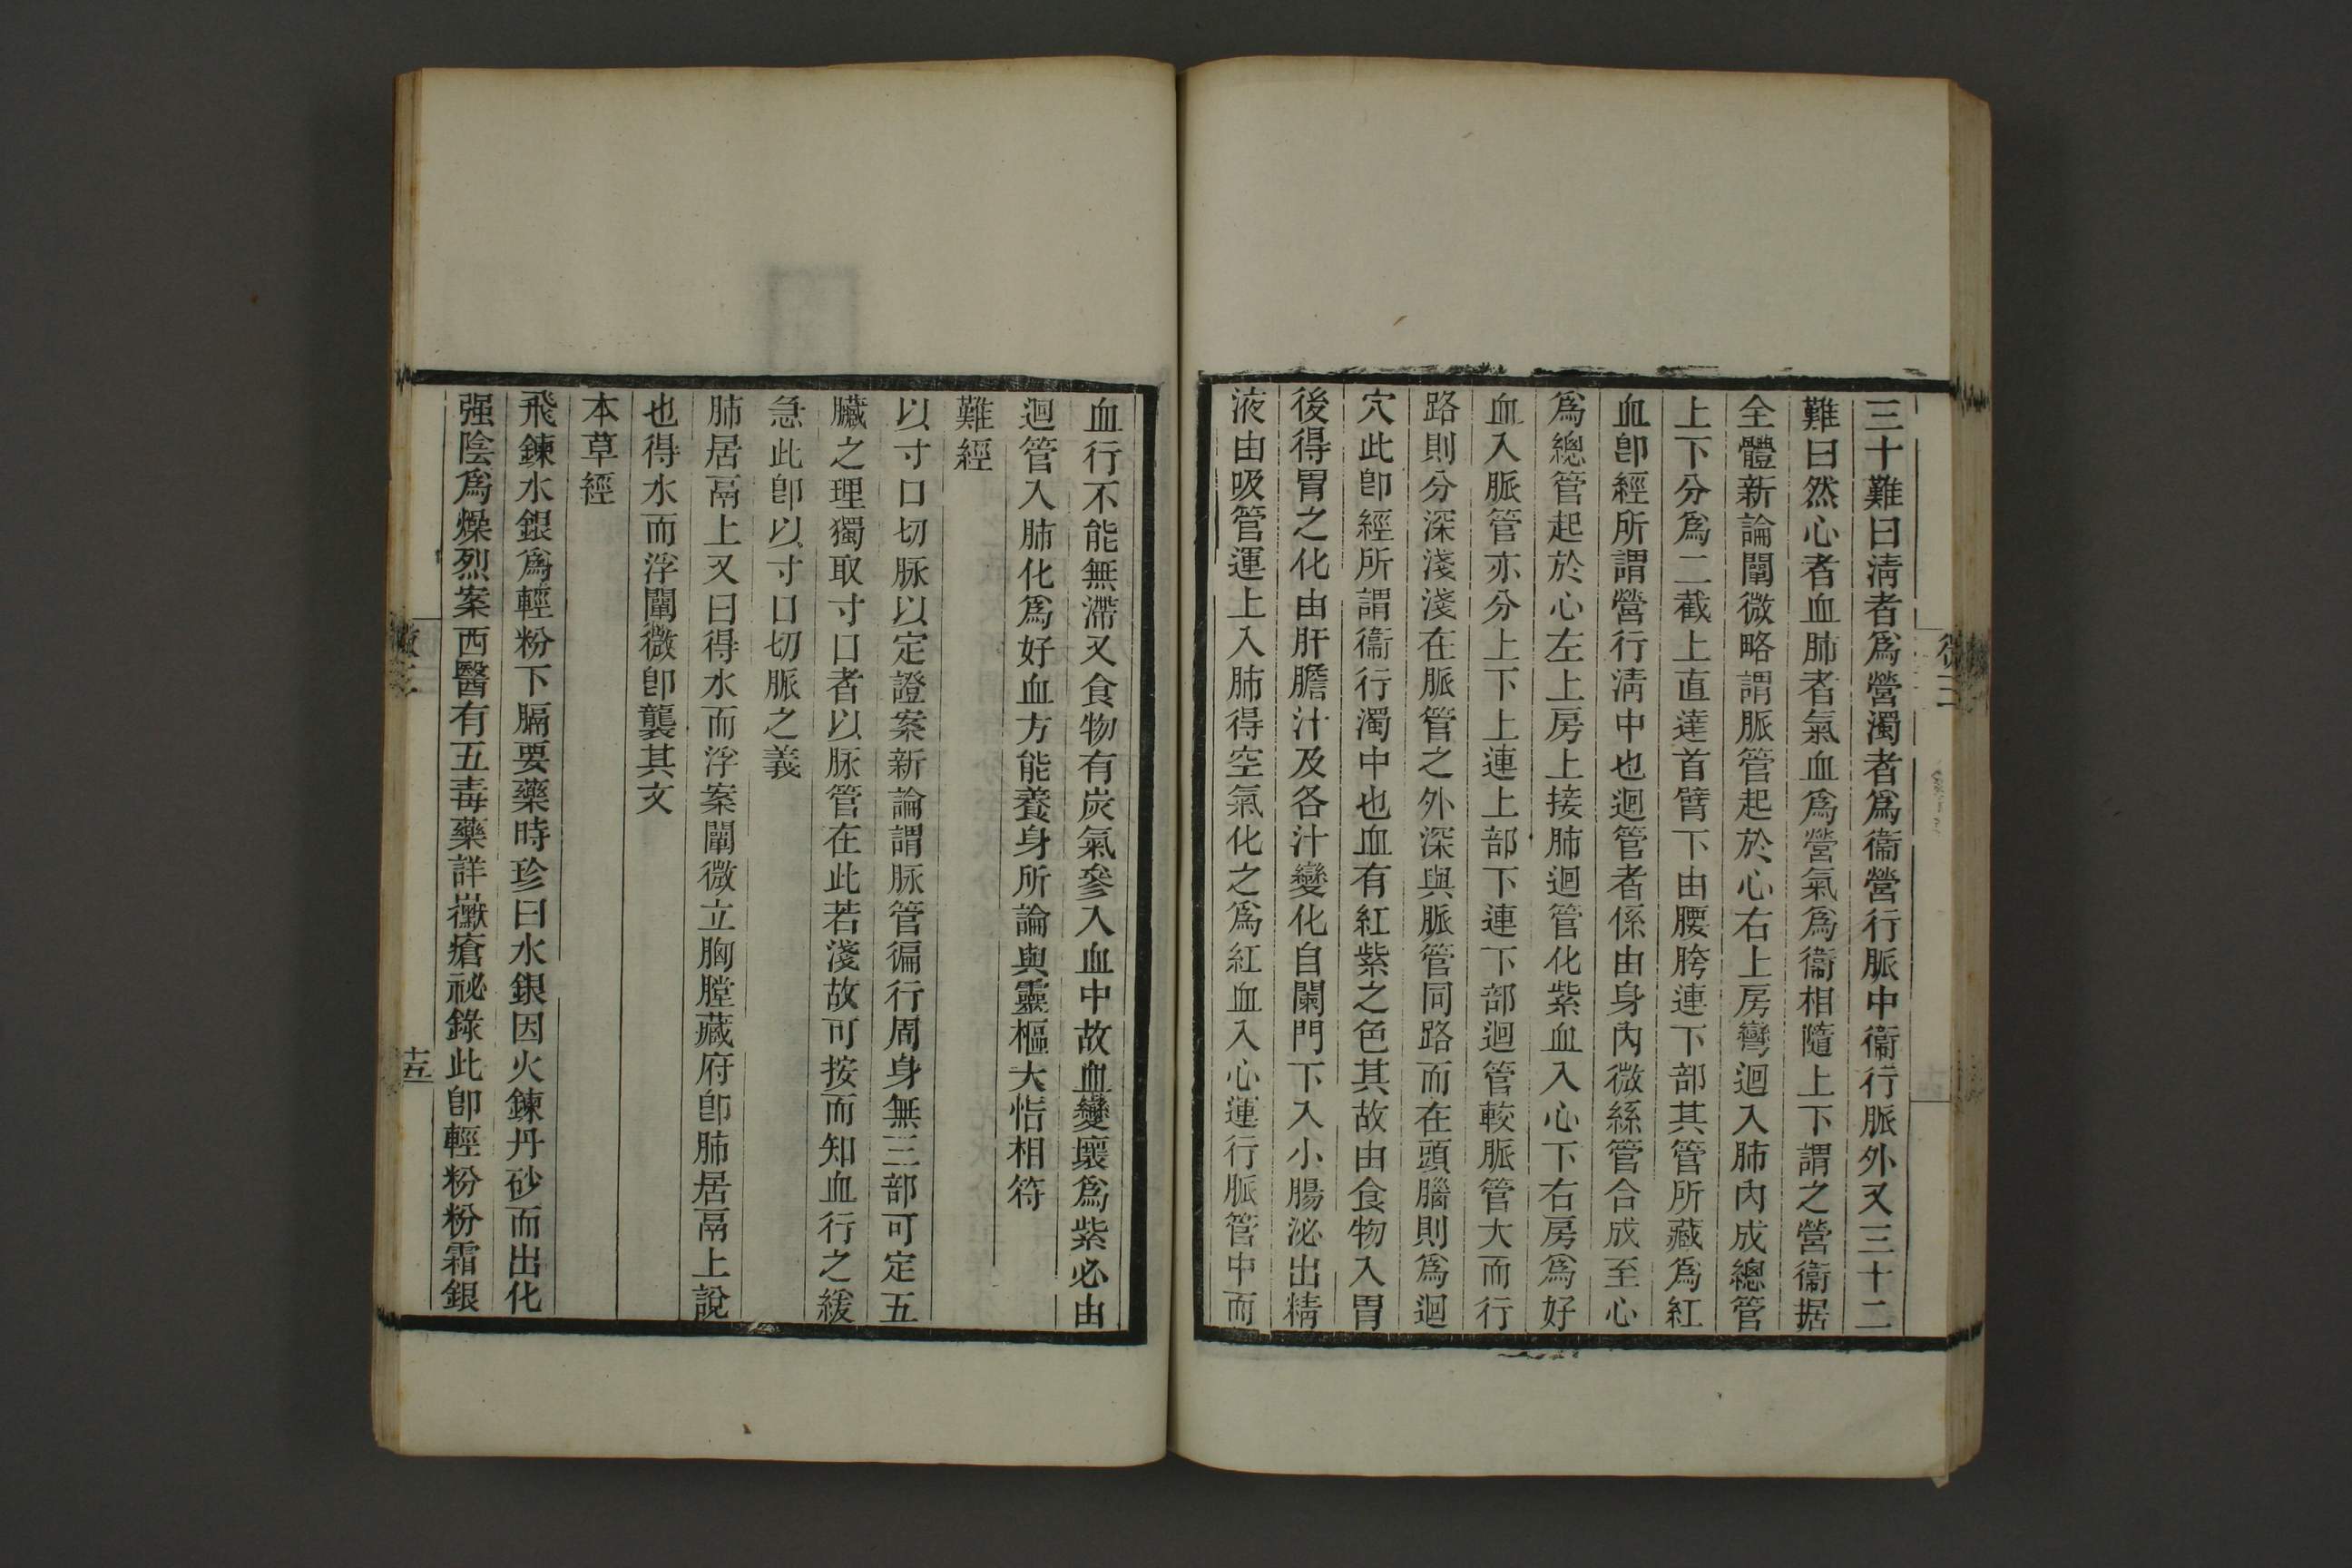 三十難曰淸者爲營濁者爲衞營行脈中衞行脈外又三十二
難曰然心者血肺者氣血爲營氣爲衞相隨上下謂之營衞据
全體新論闡微略謂脈管起於心右上房彎迴入肺內成總管
上下分爲二截上直達首臂下由腰胯連下部其管所藏爲紅
血卽經所謂營行淸中也迴管者係由身內微絲管合成至心
爲總管起於心左上房上接肺迴管化紫血入心下右房爲好
血入脈管亦分上下上連上部下連下部迴管較脈管大而行
路則分深淺淺在脈管之外深與脈管同路而在頭腦則爲迴
穴此卽經所謂衞行濁中也血有紅紫之色其故由食物入胃
後得胃之化由肝膽汁及各汁變化自闌門下入小腸泌出精
液由吸管運上入肺得空氣化之爲紅血入心運行脈管中而
血行不能無滯又食物有炭氣參入血中故血變壞爲紫必由
迴管入肺化爲好血方能養身所論與靈樞大恉相符
難經
以寸口切脉以定證案新論謂脉管徧行周身無三部可定五
臟之理獨取寸口者以脉管在此若淺故可按而知血行之緩
急此卽以寸口切脈之義
肺居鬲上又曰得水而浮案闡微立胸膛藏府卽肺居鬲上說
也得水而浮闡微卽襲其文
本草經
飛鍊水銀爲輕粉下膈要藥時珍曰水銀因火鍊丹砂而出化
强陰爲燥烈案西醫有五毒藥詳黴瘡祕錄此卽輕粉粉霜銀
十五